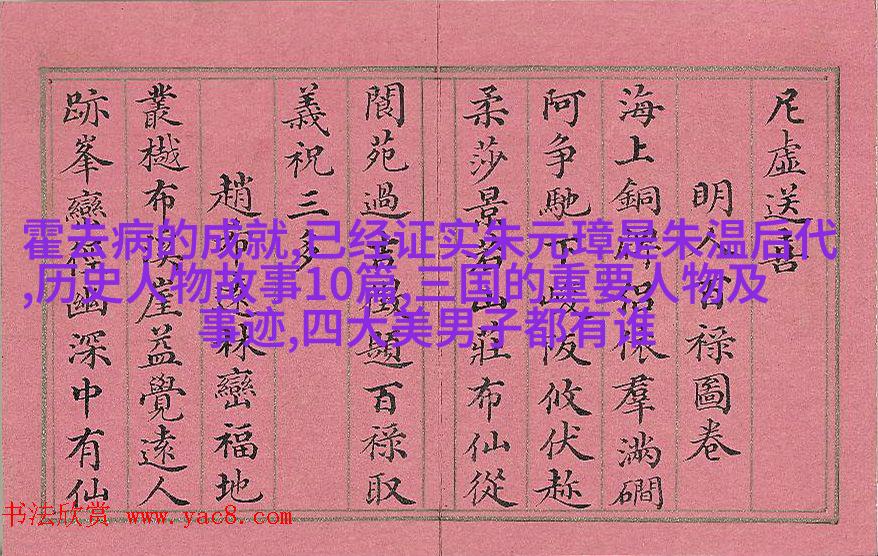 虛送喜
明人百祿圖卷
海上銅羣滿磵
阿争馳下阪攸伏
柔莎景若山莊布仙從
閬苑過題百祿取
義祝三多
趙布遠林巒福地
叢樾布崖益覺遠人
跡峯巒幽深中有仙
霍去病的成就,已经证实朱元璋是朱温后代
,历史人物故事10篇,三国的重要人物及
事迹,四大美男子都有谁
书法欣赏 www.yac8.com